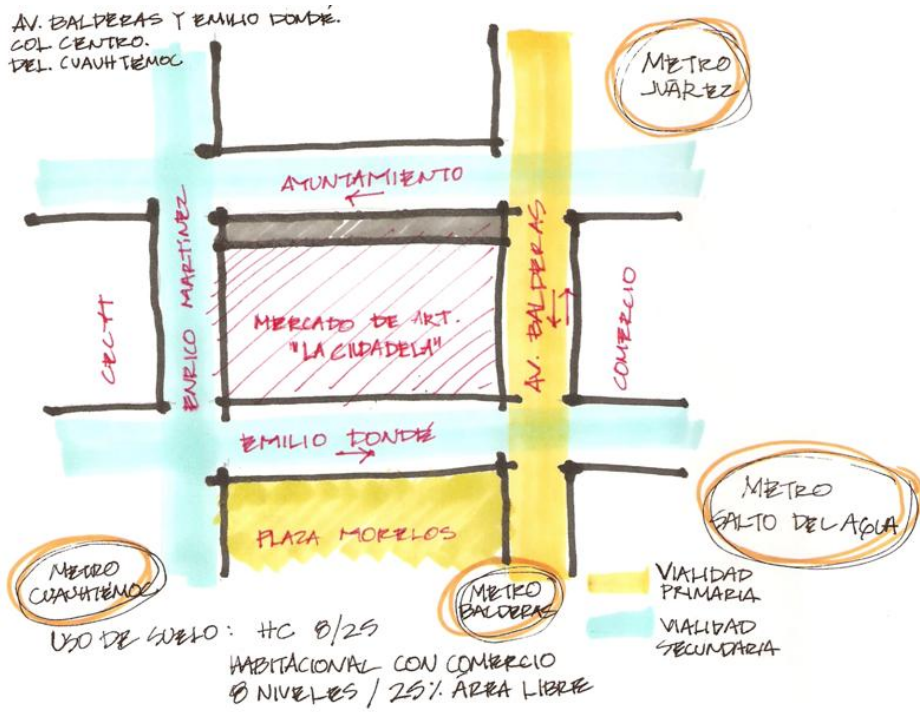 AV. BALDERAS Y EMILIO DONDÉ.
COL. CENTRO.
DEL. CUAUHTÉMOC
METRO
JUÁREZ
AYUNTAMIENTO
ENRICO MARTINEZ
AV. BALDERAS
COMERCIO
MERCADO DE ART.
"LA CIUDADELA"
EMILIO DONDÉ
PLAZA MORELOS
METRO
SALTO DEL AGUA
METRO
CUAUHTÉMOC
METRO
BALDERAS
VIALIDAD
PRIMARIA
VIALIDAD
SECUNDARIA
USO DE SUELO: HC 8/25
HABITACIONAL CON COMERCIO
8 NIVELES / 25% ÁREA LIBRE